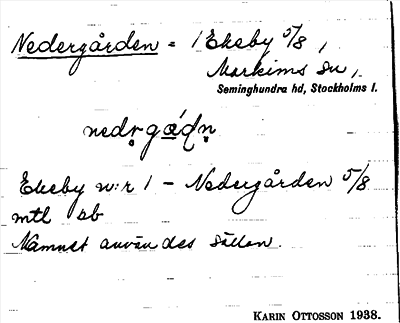 Nedergården = 1 Ekeby 5/8,
Markims sn,
Seminghundra hd, Stockholms l.
Ekeby n:r 1 - Nedergården 5/8
mtl sb
Namnet användes sällan.
KARIN OTTOSSON 1938.